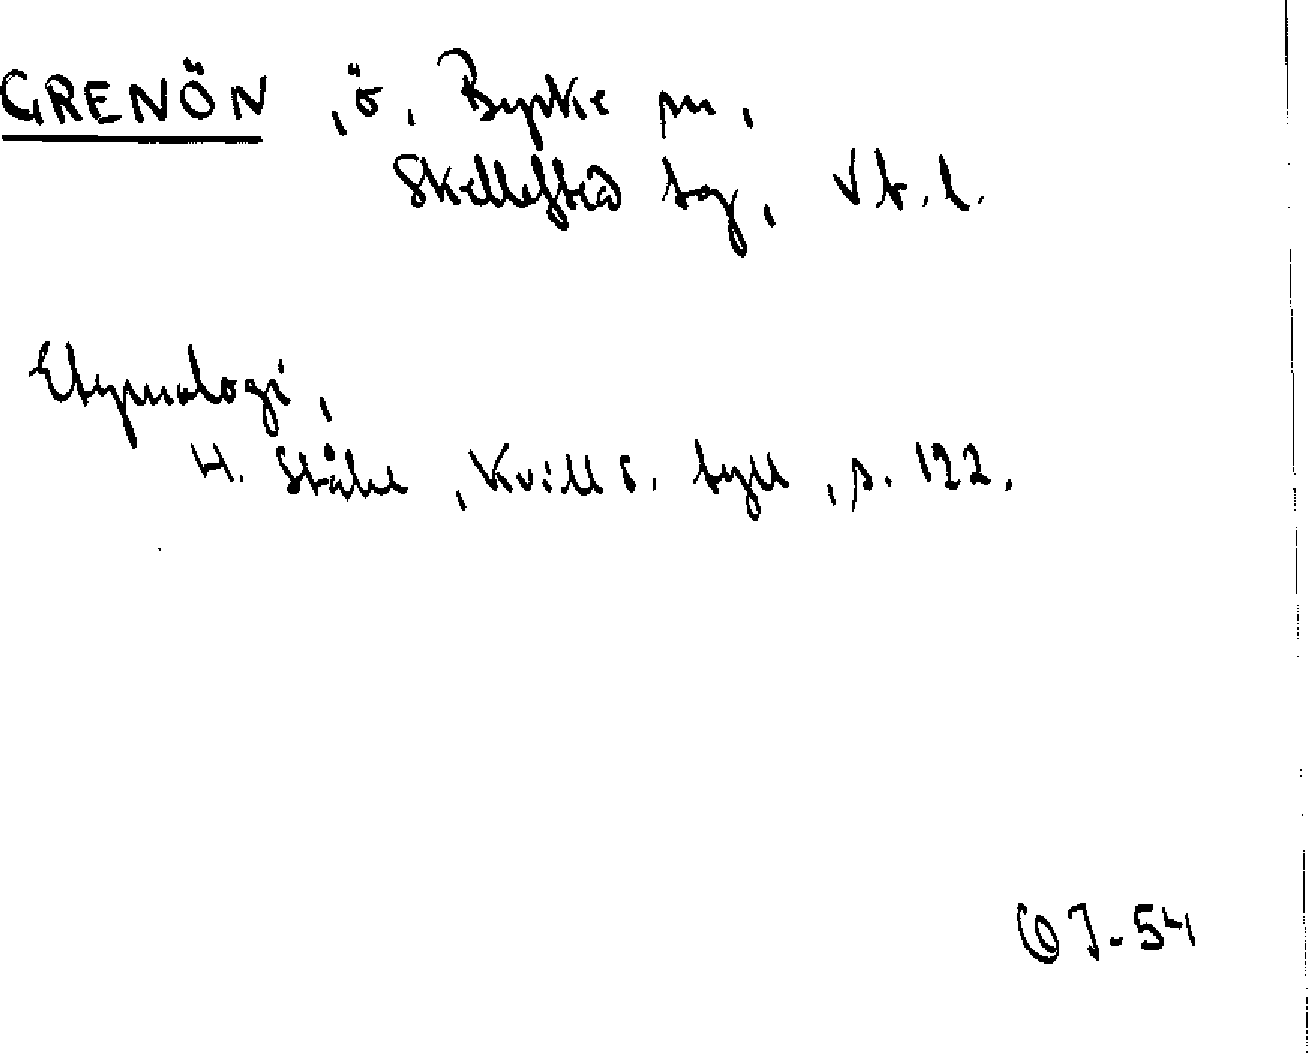 GRENÖN, ö, Byske sn,
Skellefteå tg, Vb. l.
Etymologi,
H. Ståhl, Kvill o. tyll, s. 122.
OJ-54